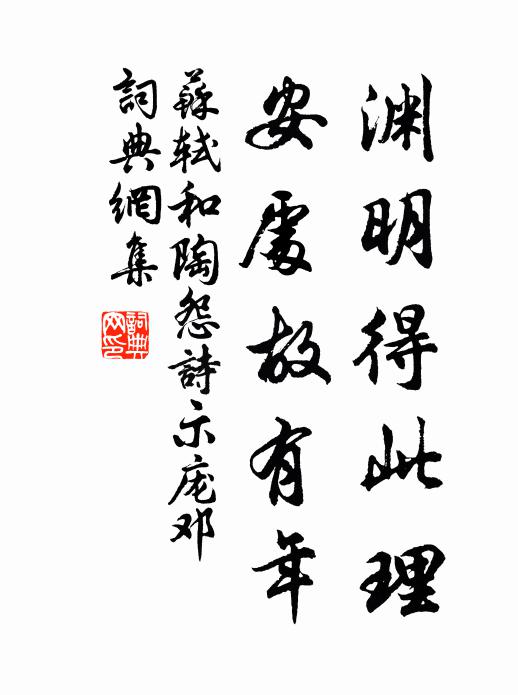 渊明得此理
安處故有年
蘇軾和陶怨詩示庞邓
詞典網集
詞典
网印